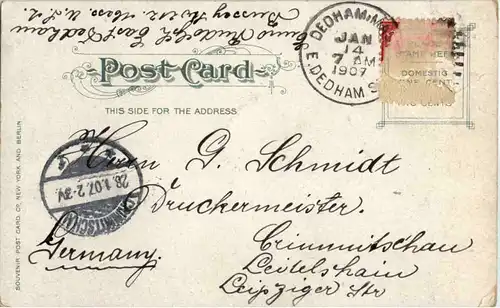 East Dedham
Mass. U.S.A.
DEDHAM, MASS.
JAN
14
7 AM
1907
E. DEDHAM S
DOMESTIC
ONE CENT
CENTS
Post Card
THIS SIDE FOR THE ADDRESS
SOUVENIR POST CARD CO., NEW YORK AND BERLIN
Herrn G. Schmidt
Druckermeister.
Crimmitschau
Germany.
Leitelshain
Leipziger Str
28.1.07. 2-3N.